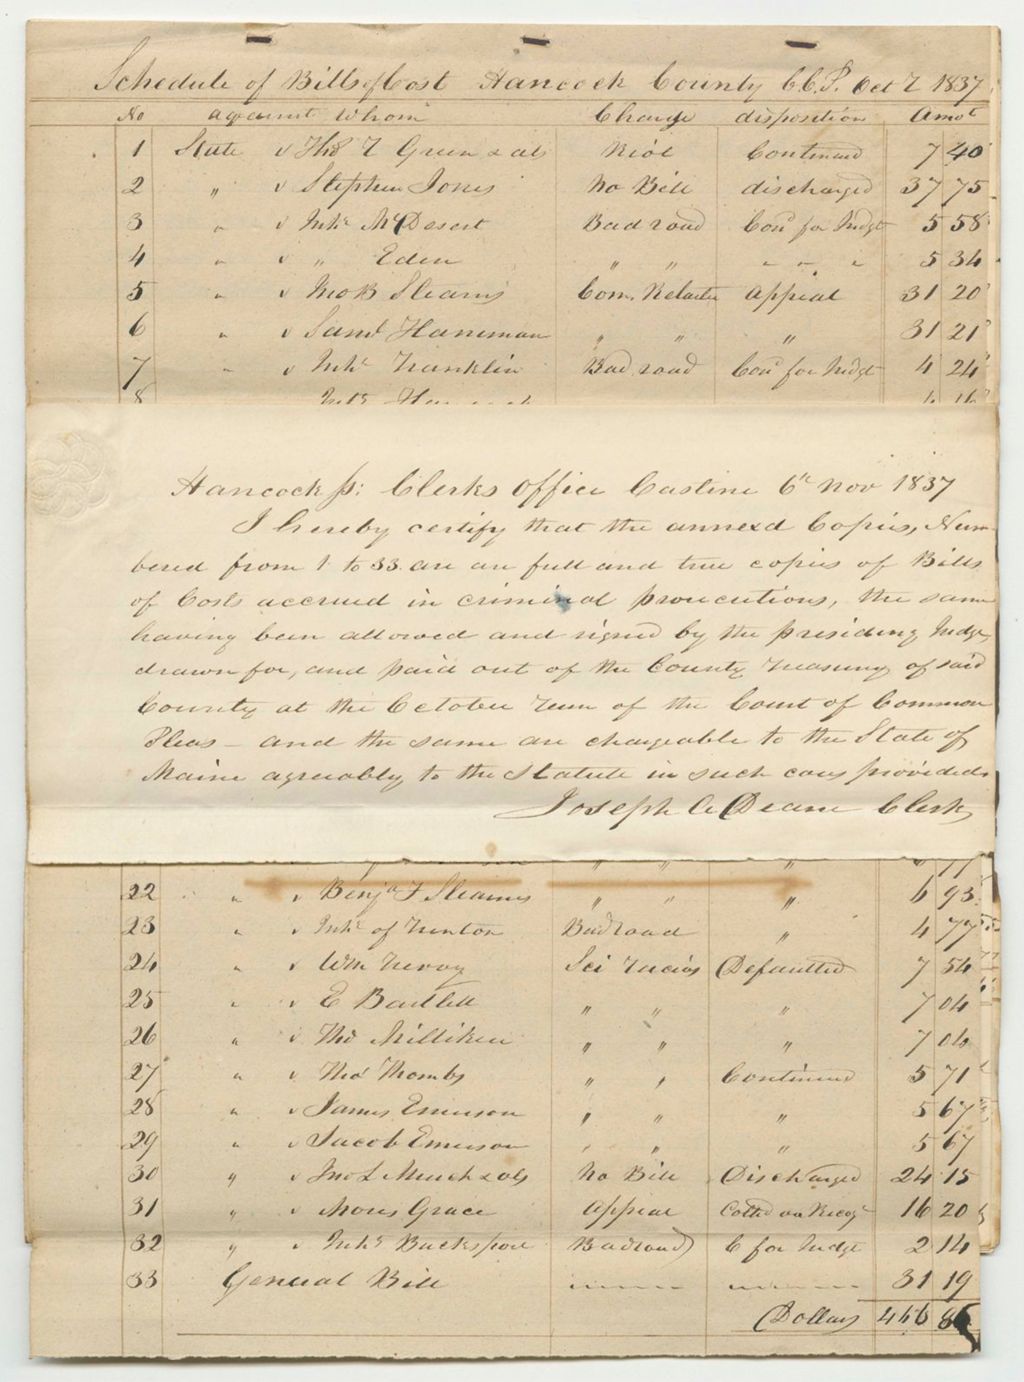 Schedule of Bills of Cost Hancock County C.C.P. Oct T 1837
No against Whom Charge disposition Amot
1 State v Thos T Green & als Riot Continued 7 40
2 " v Stephen Jones No Bill discharged 37 75
3 " v Inhs Mt Desert Bad road Cond for Judgt 5 58
4 " v " Eden " " " " " 5 34
5 " v Jno B Stearns Com. Retailer Appeal 31 20
6 " v Saml Haniman " " " 31 21
7 " v Inhs Franklin Bad road Cond for Judgt 4 24
8 Inhs
Hancock ss: Clerks Office Castine 6th Nov 1837
I hereby certify that the annexd Copies, Num-
bered from 1 to 33 are are full and true copies of Bills
of Costs accrued in criminal prosecutions, the same
having been allowed and signed by the presiding Judge,
drawn for, and paid out of the County Treasury of said
County at the October Term of the Court of Common
Pleas – and the same are chargeable to the State of
Maine agreeably to the Statute in such cases provided.
Joseph A Deane Clerk
22 " v Benja F Stearns " " " 6 93
23 " v Inhs of Trenton Bad road " 4 77
24 " v Wm Nevoy Sci Facias Defaulted 7 54
25 " v E Bartlett " " " 7 04
26 " v Tho Milliken " " " 7 04
27 " v Thos Thombs " " Continued 5 71
28 " v James Emerson " " " 5 67
29 " v Jacob Emerson " " " 5 67
30 " v Jno L Murch & als No Bill Discharged 24 15
31 " v Moses Grace Appeal Colled on Recogt 16 20
32 " v Inhs Bucksport Bad road C for Judge 2 14
33 General Bill 31 19
Dollars 466 86